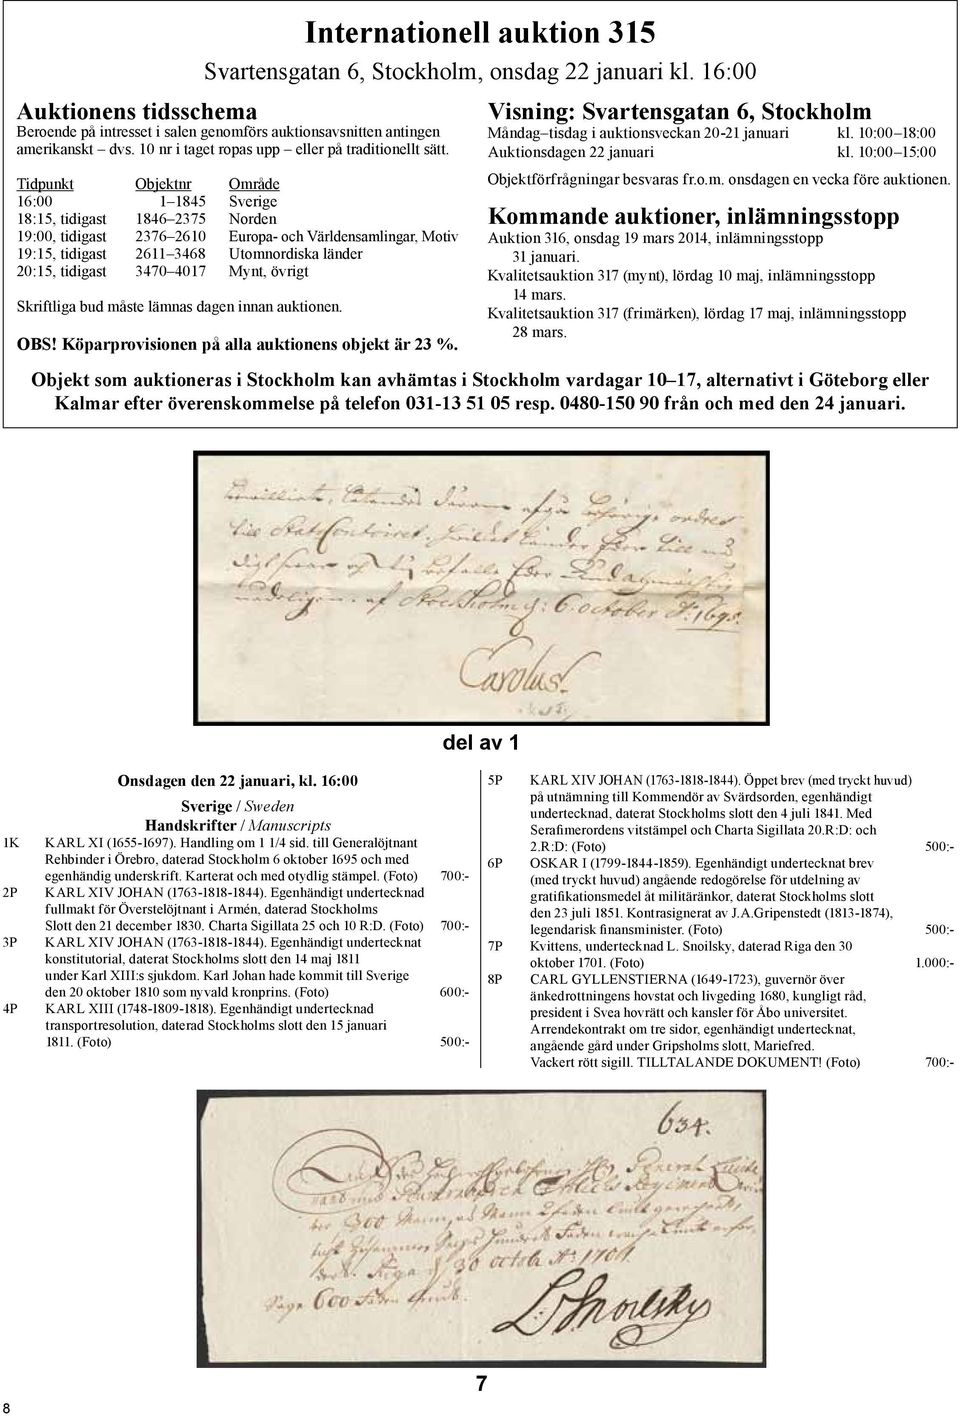 Internationell auktion 315
Svartensgatan 6, Stockholm, onsdag 22 januari kl. 16:00
Auktionens tidsschema
Beroende på intresset i salen genomförs auktionsavsnitten antingen
amerikanskt – dvs. 10 nr i taget ropas upp – eller på traditionellt sätt.
Tidpunkt Objektnr Område
16:00 1–1845 Sverige
18:15, tidigast 1846–2375 Norden
19:00, tidigast 2376–2610 Europa- och Världensamlingar, Motiv
19:15, tidigast 2611–3468 Utomnordiska länder
20:15, tidigast 3470–4017 Mynt, övrigt
Skriftliga bud måste lämnas dagen innan auktionen.
OBS! Köparprovisionen på alla auktionens objekt är 23 %.
Visning: Svartensgatan 6, Stockholm
Måndag–tisdag i auktionsveckan 20-21 januari kl. 10:00–18:00
Auktionsdagen 22 januari kl. 10:00–15:00
Objektförfrågningar besvaras fr.o.m. onsdagen en vecka före auktionen.
Kommande auktioner, inlämningsstopp
Auktion 316, onsdag 19 mars 2014, inlämningsstopp
31 januari.
Kvalitetsauktion 317 (mynt), lördag 10 maj, inlämningsstopp
14 mars.
Kvalitetsauktion 317 (frimärken), lördag 17 maj, inlämningsstopp
28 mars.
Objekt som auktioneras i Stockholm kan avhämtas i Stockholm vardagar 10–17, alternativt i Göteborg eller
Kalmar efter överenskommelse på telefon 031-13 51 05 resp. 0480-150 90 från och med den 24 januari.
ordres
till Stats Contoiret
till
befalle Eder Gud
nådeligen. af Stockholm d: 6. october A:o 1695.
Carolus.
del av 1
Onsdagen den 22 januari, kl. 16:00
Sverige / Sweden
Handskrifter / Manuscripts
1K KARL XI (1655-1697). Handling om 1 1/4 sid. till Generallöjtnant
Rehbinder i Örebro, daterad Stockholm 6 oktober 1695 och med
egenhändig underskrift. Karterat och med otydlig stämpel. (Foto) 700:-
2P KARL XIV JOHAN (1763-1818-1844). Egenhändigt undertecknad
fullmakt för Överstelöjtnant i Armén, daterad Stockholms
Slott den 21 december 1830. Charta Sigillata 25 och 10 R:D. (Foto) 700:-
3P KARL XIV JOHAN (1763-1818-1844). Egenhändigt undertecknat
konstitutorial, daterat Stockholms slott den 14 maj 1811
under Karl XIII:s sjukdom. Karl Johan hade kommit till Sverige
den 20 oktober 1810 som nyvald kronprins. (Foto) 600:-
4P KARL XIII (1748-1809-1818). Egenhändigt undertecknad
transportresolution, daterad Stockholms slott den 15 januari
1811. (Foto) 500:-
5P KARL XIV JOHAN (1763-1818-1844). Öppet brev (med tryckt huvud)
på utnämning till Kommendör av Svärdsorden, egenhändigt
undertecknad, daterat Stockholms slott den 4 juli 1841. Med
Serafimerordens vitstämpel och Charta Sigillata 20.R:D: och
2.R:D: (Foto) 500:-
6P OSKAR I (1799-1844-1859). Egenhändigt undertecknat brev
(med tryckt huvud) angående redogörelse för utdelning av
gratifikationsmedel åt militäränkor, daterat Stockholms slott
den 23 juli 1851. Kontrasignerat av J.A.Gripenstedt (1813-1874),
legendarisk finansminister. (Foto) 500:-
7P Kvittens, undertecknad L. Snoilsky, daterad Riga den 30
oktober 1701. (Foto) 1.000:-
8P CARL GYLLENSTIERNA (1649-1723), guvernör över
änkedrottningens hovstat och livgeding 1680, kungligt råd,
president i Svea hovrätt och kansler för Åbo universitet.
Arrendekontrakt om tre sidor, egenhändigt undertecknat,
angående gård under Gripsholms slott, Mariefred.
Vackert rött sigill. TILLTALANDE DOKUMENT! (Foto) 700:-
634.
General
300 Mann
Riga d 30 octob A:o 1701.
Sage 600 Faden
L Snoilsky
7
8